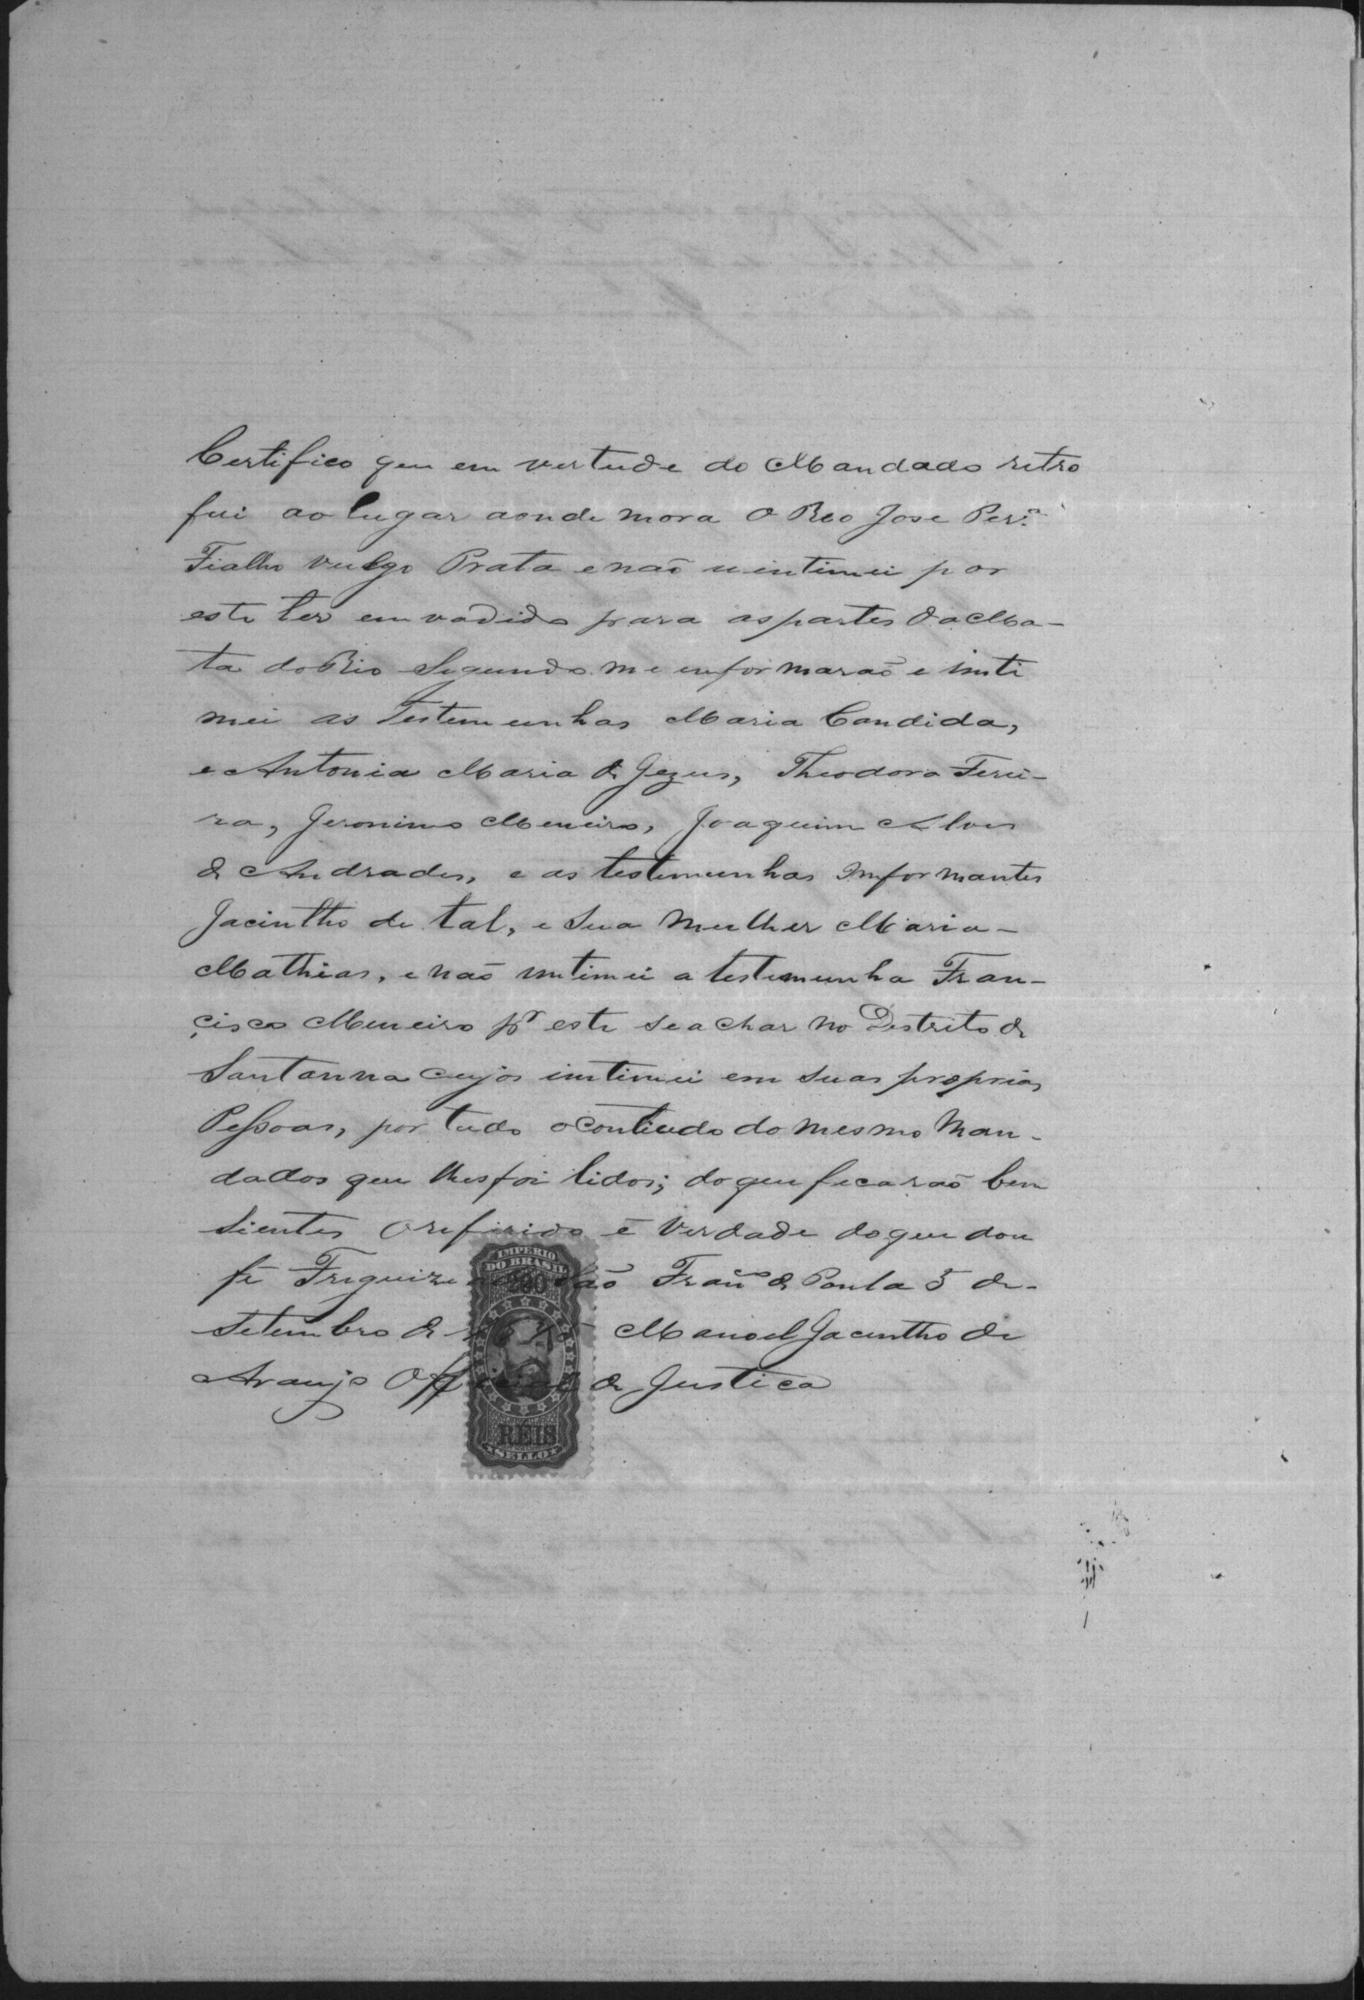 Certifico que em vertude do Mandado retro
fui ao lugar aonde mora o Reo Jose Per.ª
Fialho vulgo Prata e não u intimei por
este ter em vadido para as partes da Ma-
ta do Rio Segundo me enformarão e inti
mei as Testemunhas Maria Candida,
e Antonia Maria de Jezus, Theodora Ferei-
ra, Jeronimo Meneiro, Joaquim Alves
de Andrades, e as testemunhas imformantes
Jacintho de tal, e sua mulher Maria-
Mathias, e não intimei a testemunha Fran-
çisco Meneiro pr este se achar no Destrito de
Santanna cujos imtimei em suas proprias
Pessoas, por tudo o contiudo do mesmo Man-
dados que lhes foi lidos; do que ficarão bem
sientes O referido é verdade do que dou
fé Freguizia São Franco de Paula 5 de-
Setembro de Manoel Jacintho de
Araujo Official de Justica
IMPERIO
DO BRASIL
200
REIS
SELLO